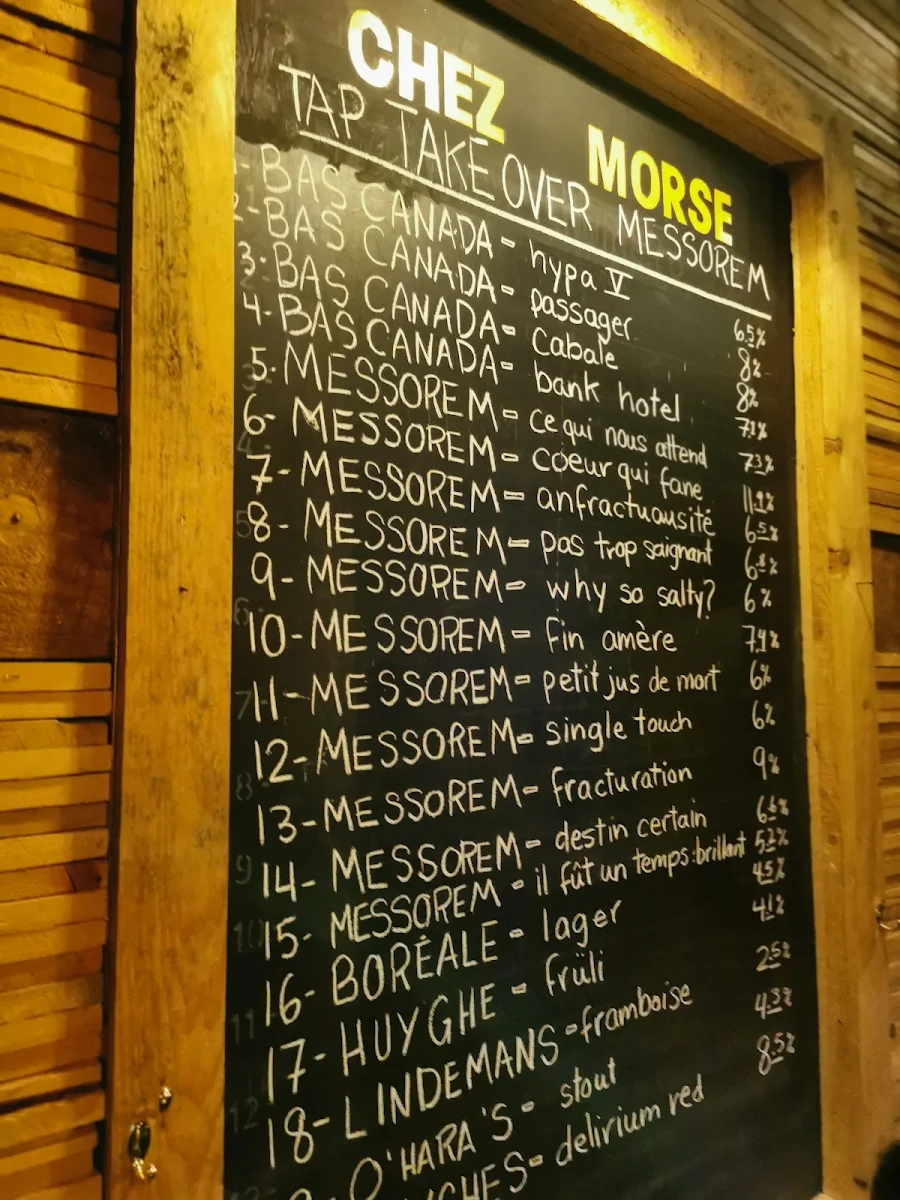 CHEZ MORSE
TAP TAKE OVER MESSOREM
1- BAS CANADA - hypa V 6.5%
2- BAS CANADA - passager 8%
3- BAS CANADA - Cabale 8%
4- BAS CANADA - bank hotel 7.1%
5- MESSOREM - ce qui nous attend 7.3%
6- MESSOREM - coeur qui fane
7- MESSOREM - anfractuausité 6.5%
8- MESSOREM - pas trop saignant 6.8%
9- MESSOREM - why so salty? 6%
10- MESSOREM - fin amère 7.4%
11- MESSOREM - petit jus de mort 6%
12- MESSOREM - single touch 6%
13- MESSOREM - fracturation 9%
14- MESSOREM - destin certain 6.6%
15- MESSOREM - il fût un temps: brillant 5.2%
16- BORÉALE - lager 4.5%
17- HUYGHE - früli 4.1%
18- LINDEMANS - framboise 2.5%
O'HARA'S - stout 4.3%
delirium red 8.5%